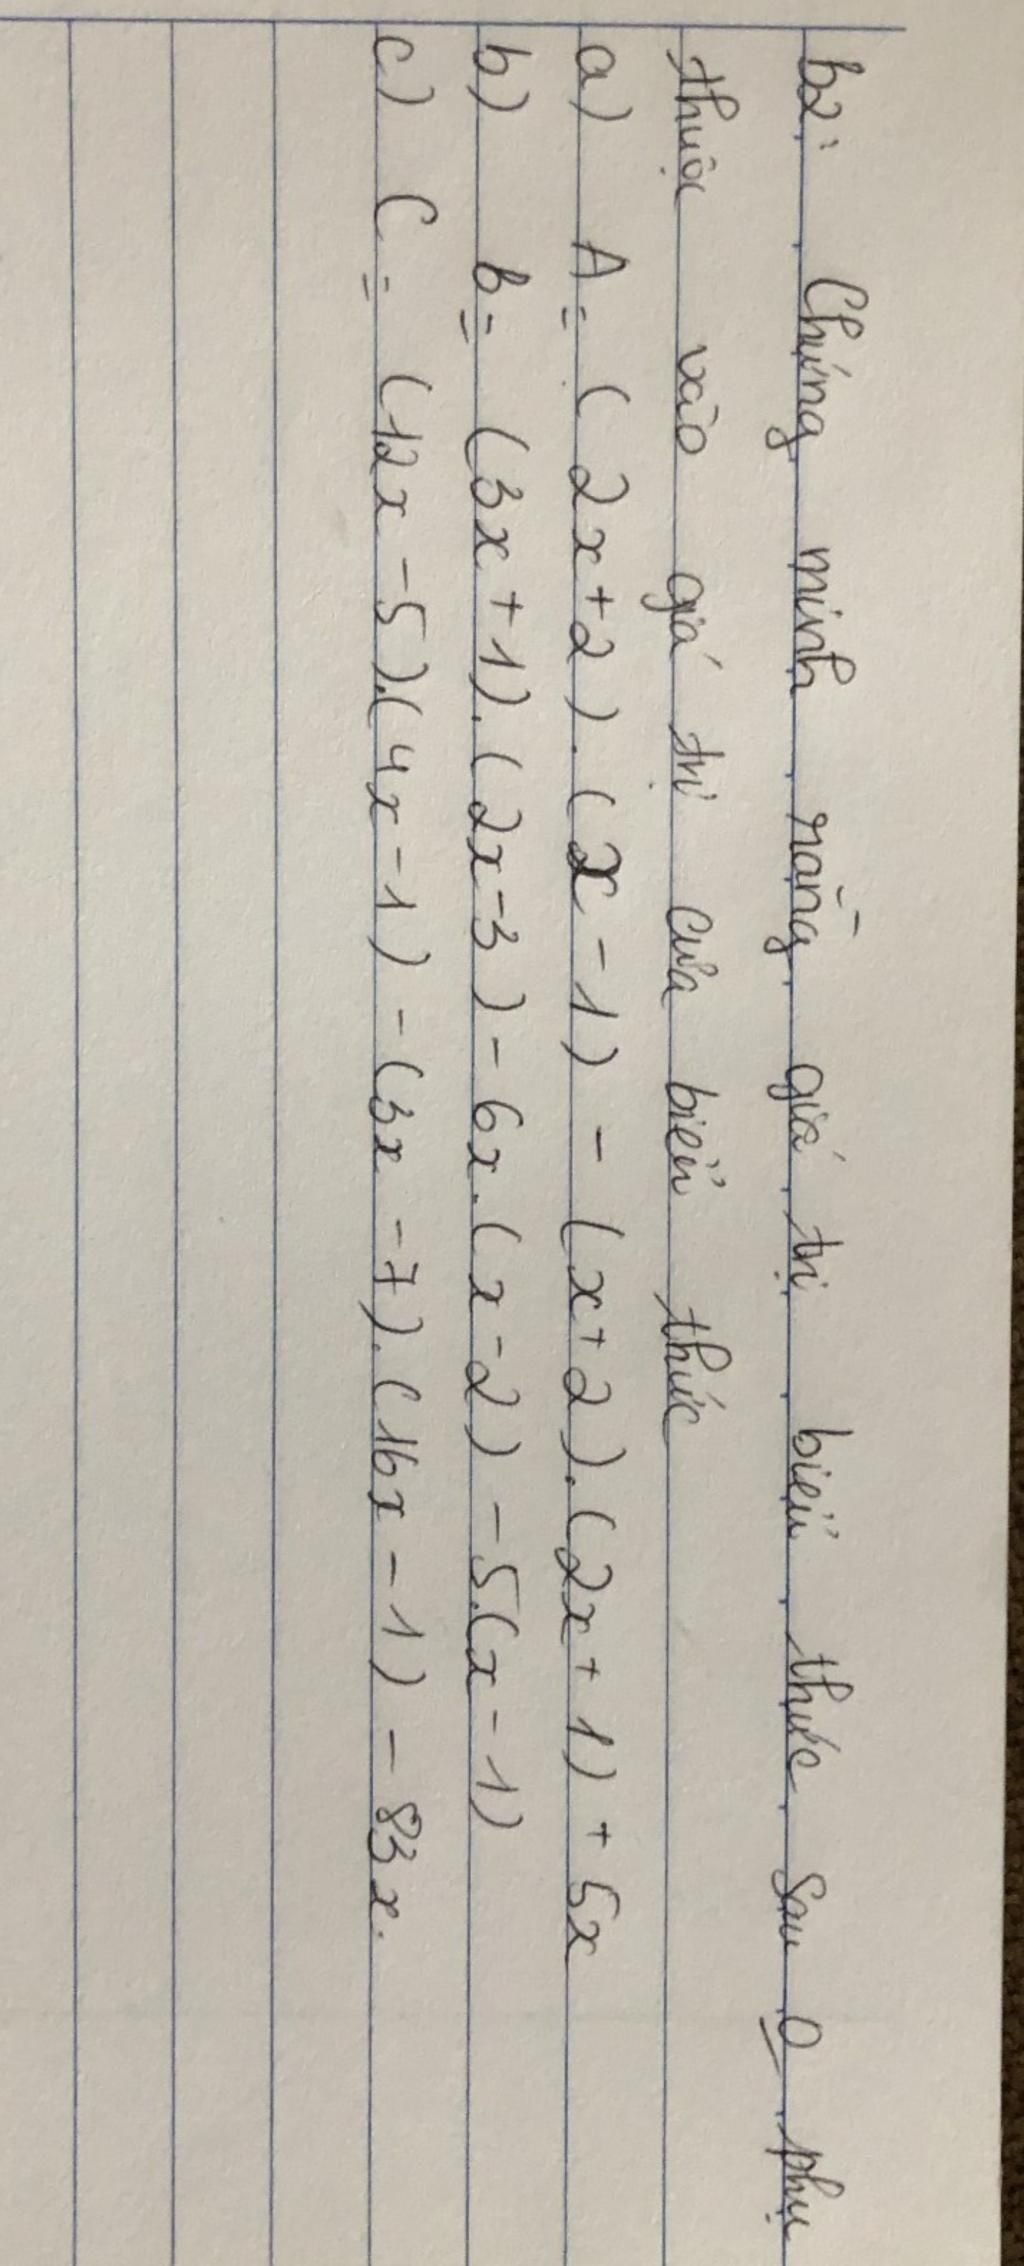 b2: Chứng minh rằng giá trị biểu thức sau 0 phụ
thuộc vào giá trị của biểu thức
a) A = (2x+2).(x-1) - (x+2).(2x+1) + 5x
b) b = (3x+1).(2x-3) - 6x.(x-2) - 5.(x-1)
c) C = (12x-5).(4x-1) - (3x-7).(16x-1) - 83x.